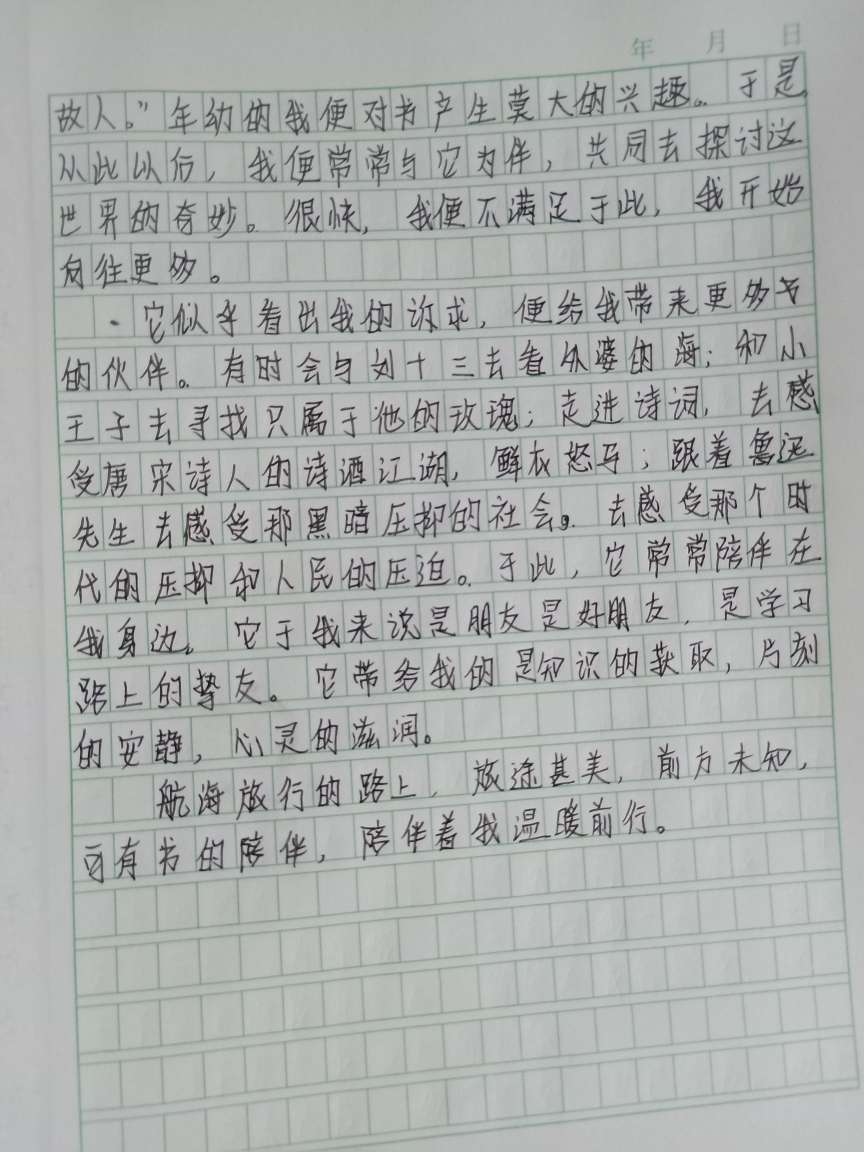 年 月 日
故人。”年幼的我便对书产生莫大的兴趣。于是
从此以后，我便常常与它为伴，共同去探讨这
世界的奇妙。很快，我便不满足于此，我开始
向往更多。
它似乎看出我的诉求，便给我带来更多书
的伙伴。有时会与刘十三去看外婆的海；和小
王子去寻找只属于他的玫瑰；走进诗词，去感
受唐宋诗人的诗酒江湖，鲜衣怒马；跟着鲁迅
先生去感受那黑暗压抑的社会。去感受那个时
代的压抑和人民的压迫。于此，它常常陪伴在
我身边。它于我来说是朋友是好朋友，是学习
路上的挚友。它带给我的是知识的获取，片刻
的安静，心灵的滋润。
航海旅行的路上，旅途甚美，前方未知，
可有书的陪伴，陪伴着我温暖前行。